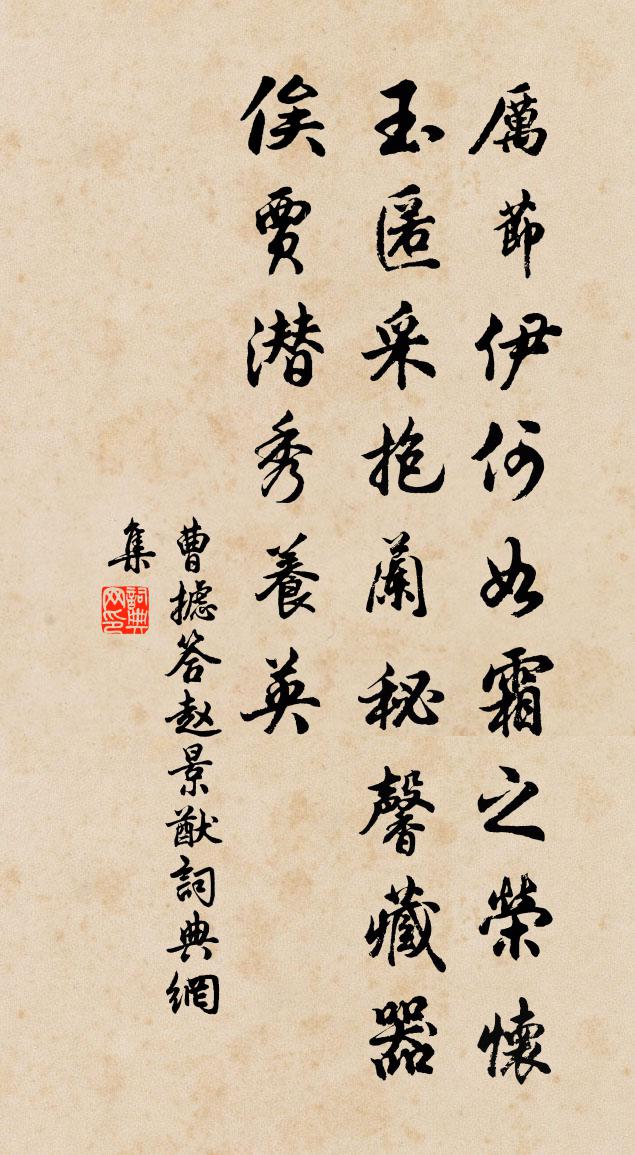 厲節伊何如霜之榮懷
玉匿采抱蘭秘馨藏器
俟賈潛秀養英
曹摅答赵景猷詞典網
集
詞典网印